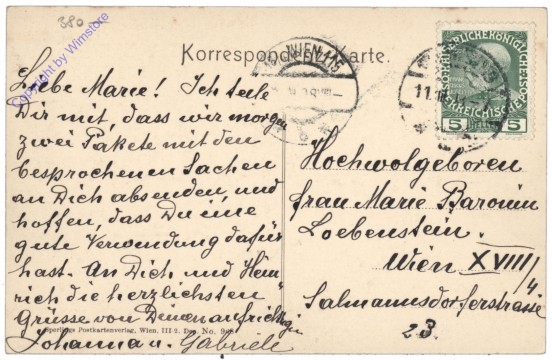 380
Copyright by Wimstore
Korrespondenz-Karte.
WIEN 115
11.
5 5
Liebe Marie! Ich teile
Dir mit, dass wir morgen
zwei Pakete mit den
besprochenen Sachen
an Dich absenden, und
hoffen, dass Du eine
gute Verwendung dafür
hast. An Dich und Hein
rich die herzlichsten
Grüsse von Deinen aufrichtigen
Johanna u. Gabriele
Hochwolgeboren
frau Marie Baronin
Loebenstein.
Wien XVIII/4
Salmannsdorferstrasse
23.
Sperlings Postkartenverlag, Wien, III/2. Dep. No.